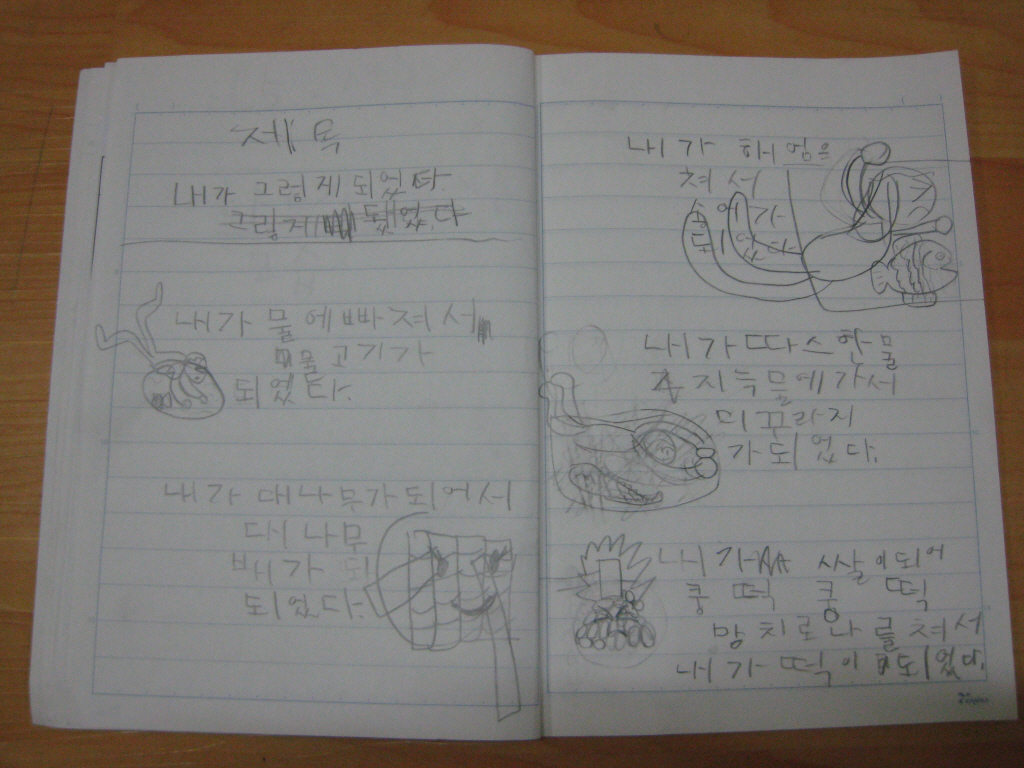 제목
내가 그렇게 되었다.
그렇게 되었다
내가 물에빠져서
물고기가
되었다.
내가 대나무가되어서
대나무
배가 되
되었다.
내가 헤엄은
쳐서
가
되었다
내가따스한물
지눅물에가서
미꾸라지
가되었다.
내가 쌀이되어
쿵 떡 쿵 떡
망치로나를쳐서
내가떡이되었다.